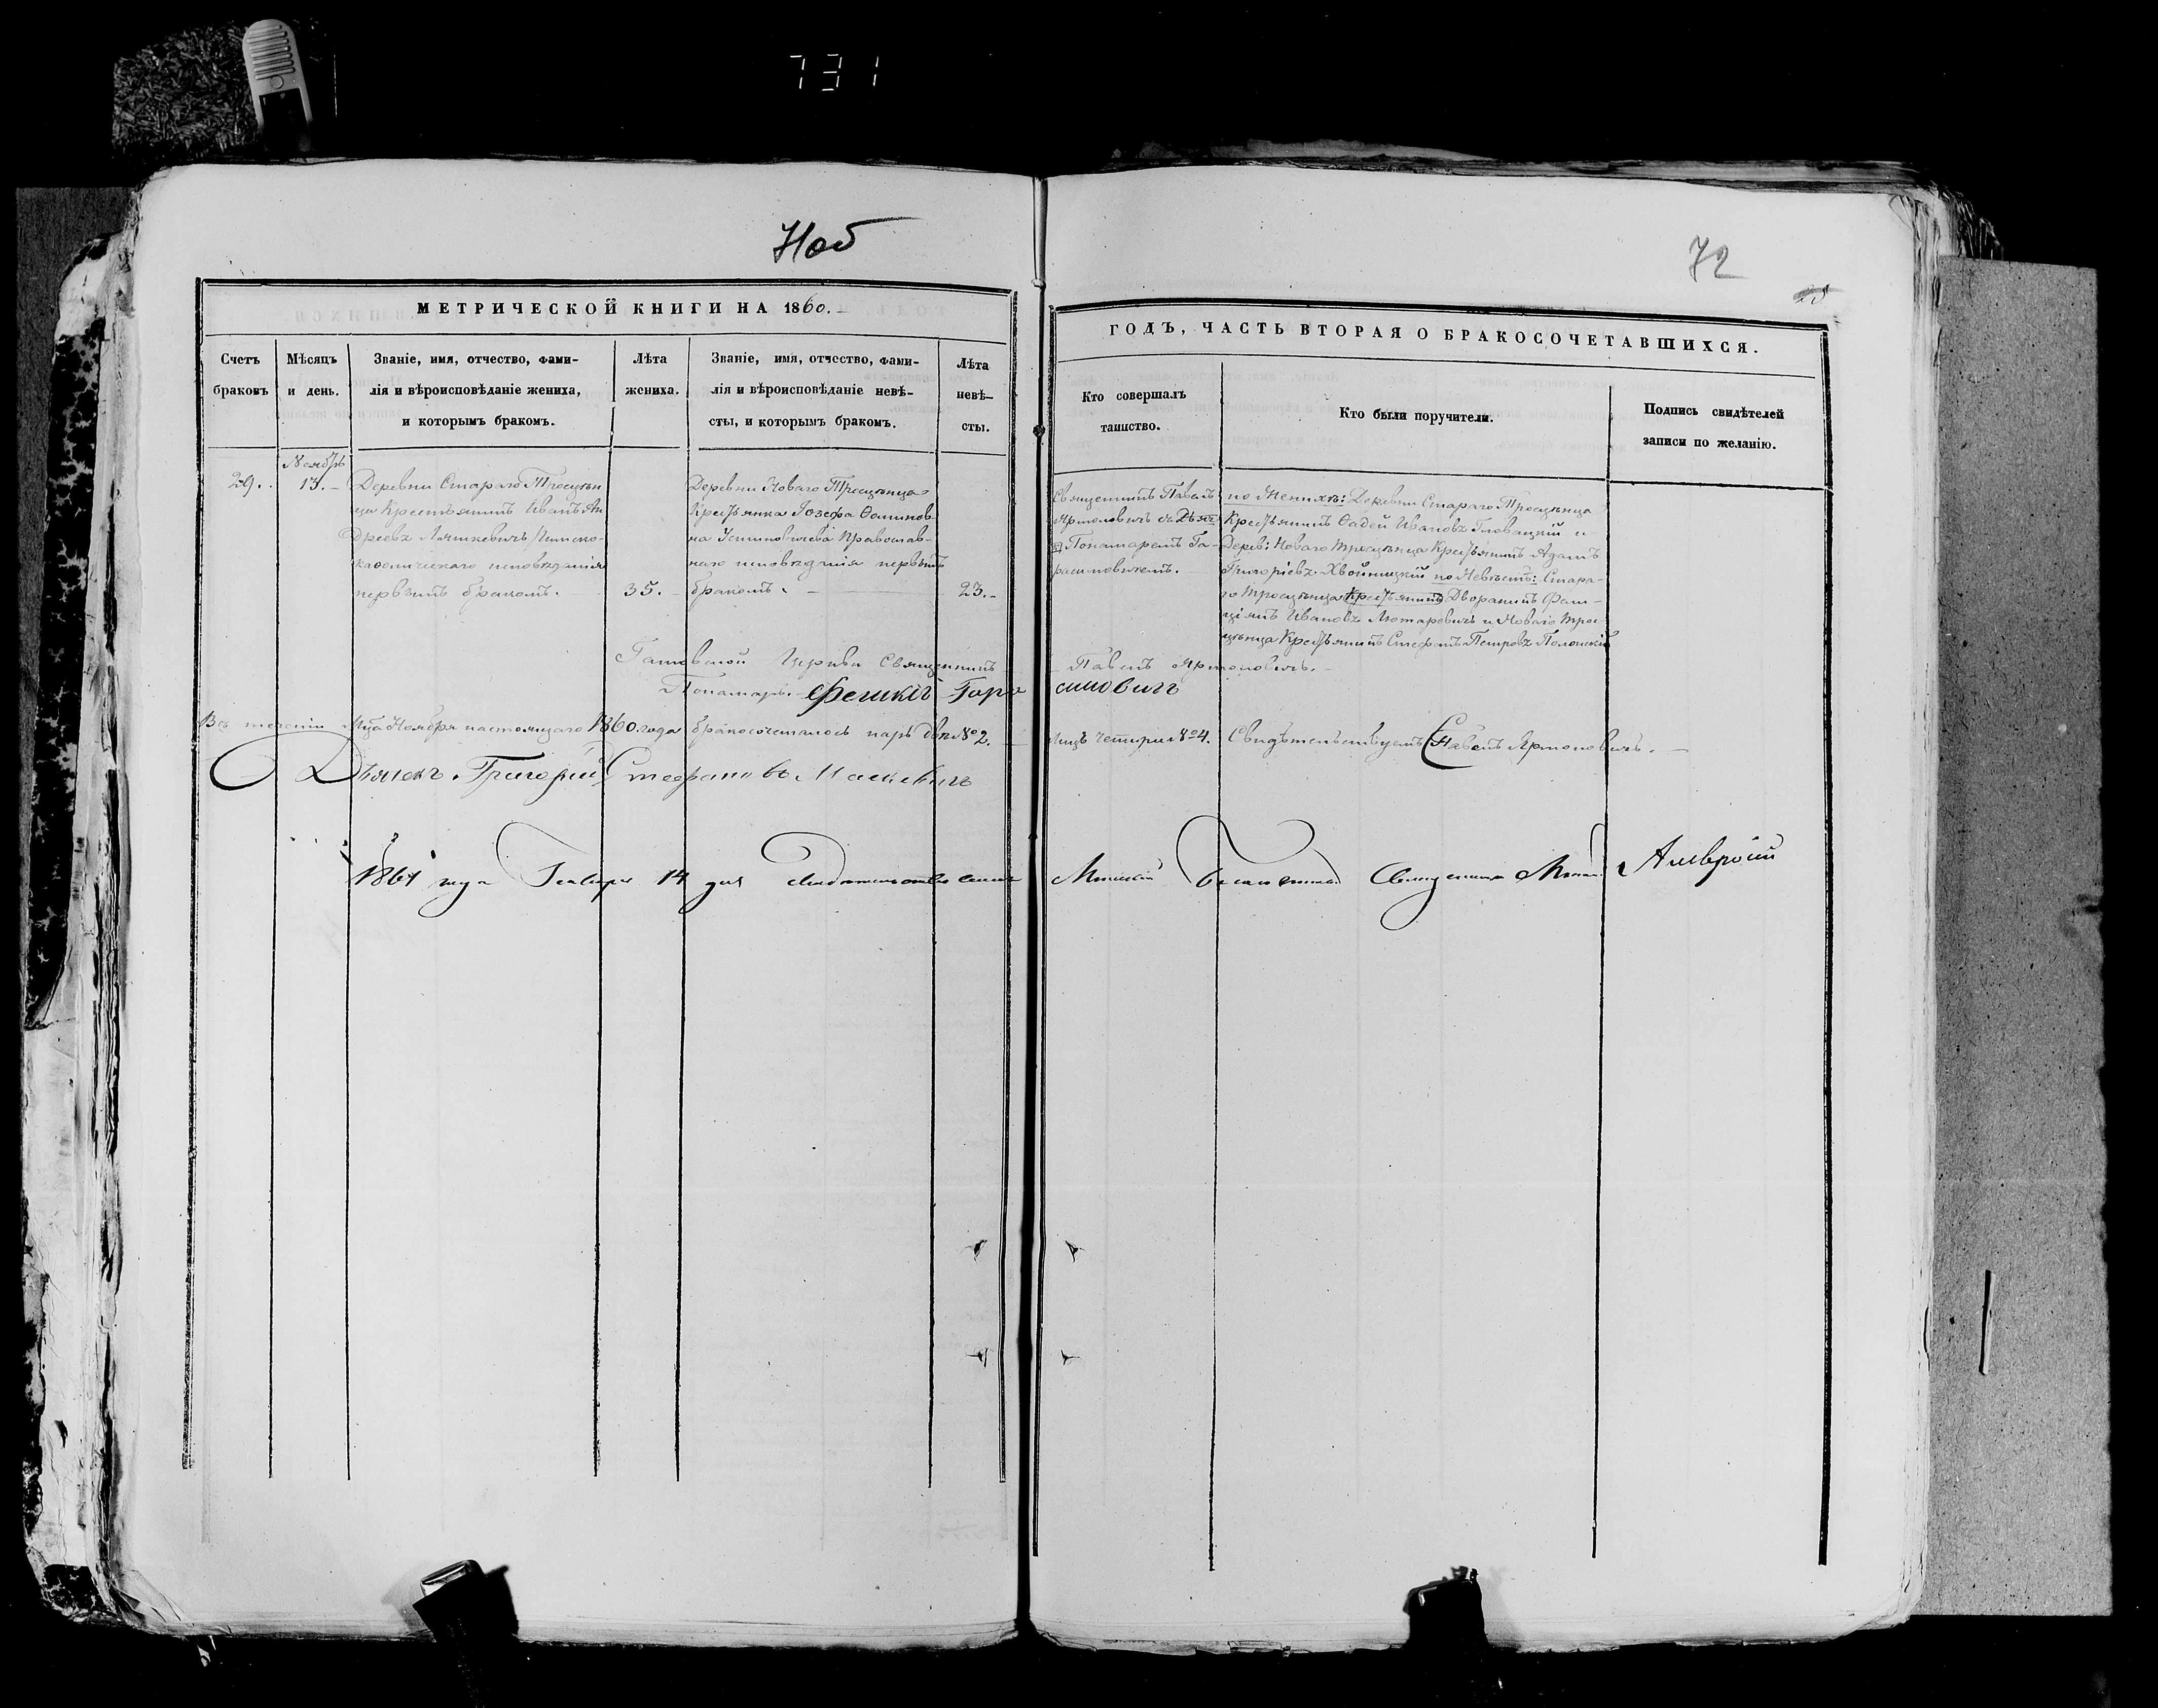 731
Ноб
72
МЕТРИЧЕСКОЙ КНИГИ НА 1860.
ГОДЪ, ЧАСТЬ ВТОРАЯ О БРАКОСОЧЕТАВШИХСЯ.
Счетъ
браковъ
Мѣсяцъ
и день.
Званіе, имя, отчество, фами-
лія и вѣроисповѣданіе жениха,
и которымъ бракомъ.
Лѣта
жениха.
Званіе, имя, отчество, фами-
лія и вѣроисповѣданіе невѣ-
сты, и которымъ бракомъ.
Лѣта
невѣ-
сты.
Кто совершалъ
таинство.
Кто были поручители.
Подпись свидѣтелей
записи по желанію.
29.
Ноябрь
13.
Деревни Стараго Тросцен
ца Крестьянинъ Иванъ Ан
дреевъ Ляшкевичъ Римско-
каѳолическаго исповѣданія
первымъ бракомъ.
35.
Деревни Новаго Тросценца
Крестьянка Іозефа
Православ-
наго исповѣданія первымъ
бракомъ.
23.
Священникъ Павелъ
Ярмоловичъ съ
Пономаремъ Га-
расимовичемъ.
по Женихѣ: Деревни Стараго Тросценца
Крестьянинъ Ѳадей Ивановъ Гловацкій и
Дерев: Новаго Тросценца Крестьянинъ Адамъ
Григоріевъ Хвойницкій по Невѣстѣ: Стара-
го Тросценца Крестьянинъ Дворянинъ Фели-
ціянъ Ивановъ и Новаго Трос
ценца Крестьянинъ Стефанъ Петровъ
Церкви Священникъ Павелъ Ярмоловичъ.
Пономарь Гарасимовичъ
Въ теченіи М-ца Ноября настоящаго 1860 года бракосочеталось паръ двѣ № 2. лицъ четыре № 4. Свидѣтельствуетъ Павелъ Ярмоловичъ.
Дьячекъ Григорій Стефановъ Мацкевичъ
1861 года Генваря 14 дня Минскій Благочинный Священникъ